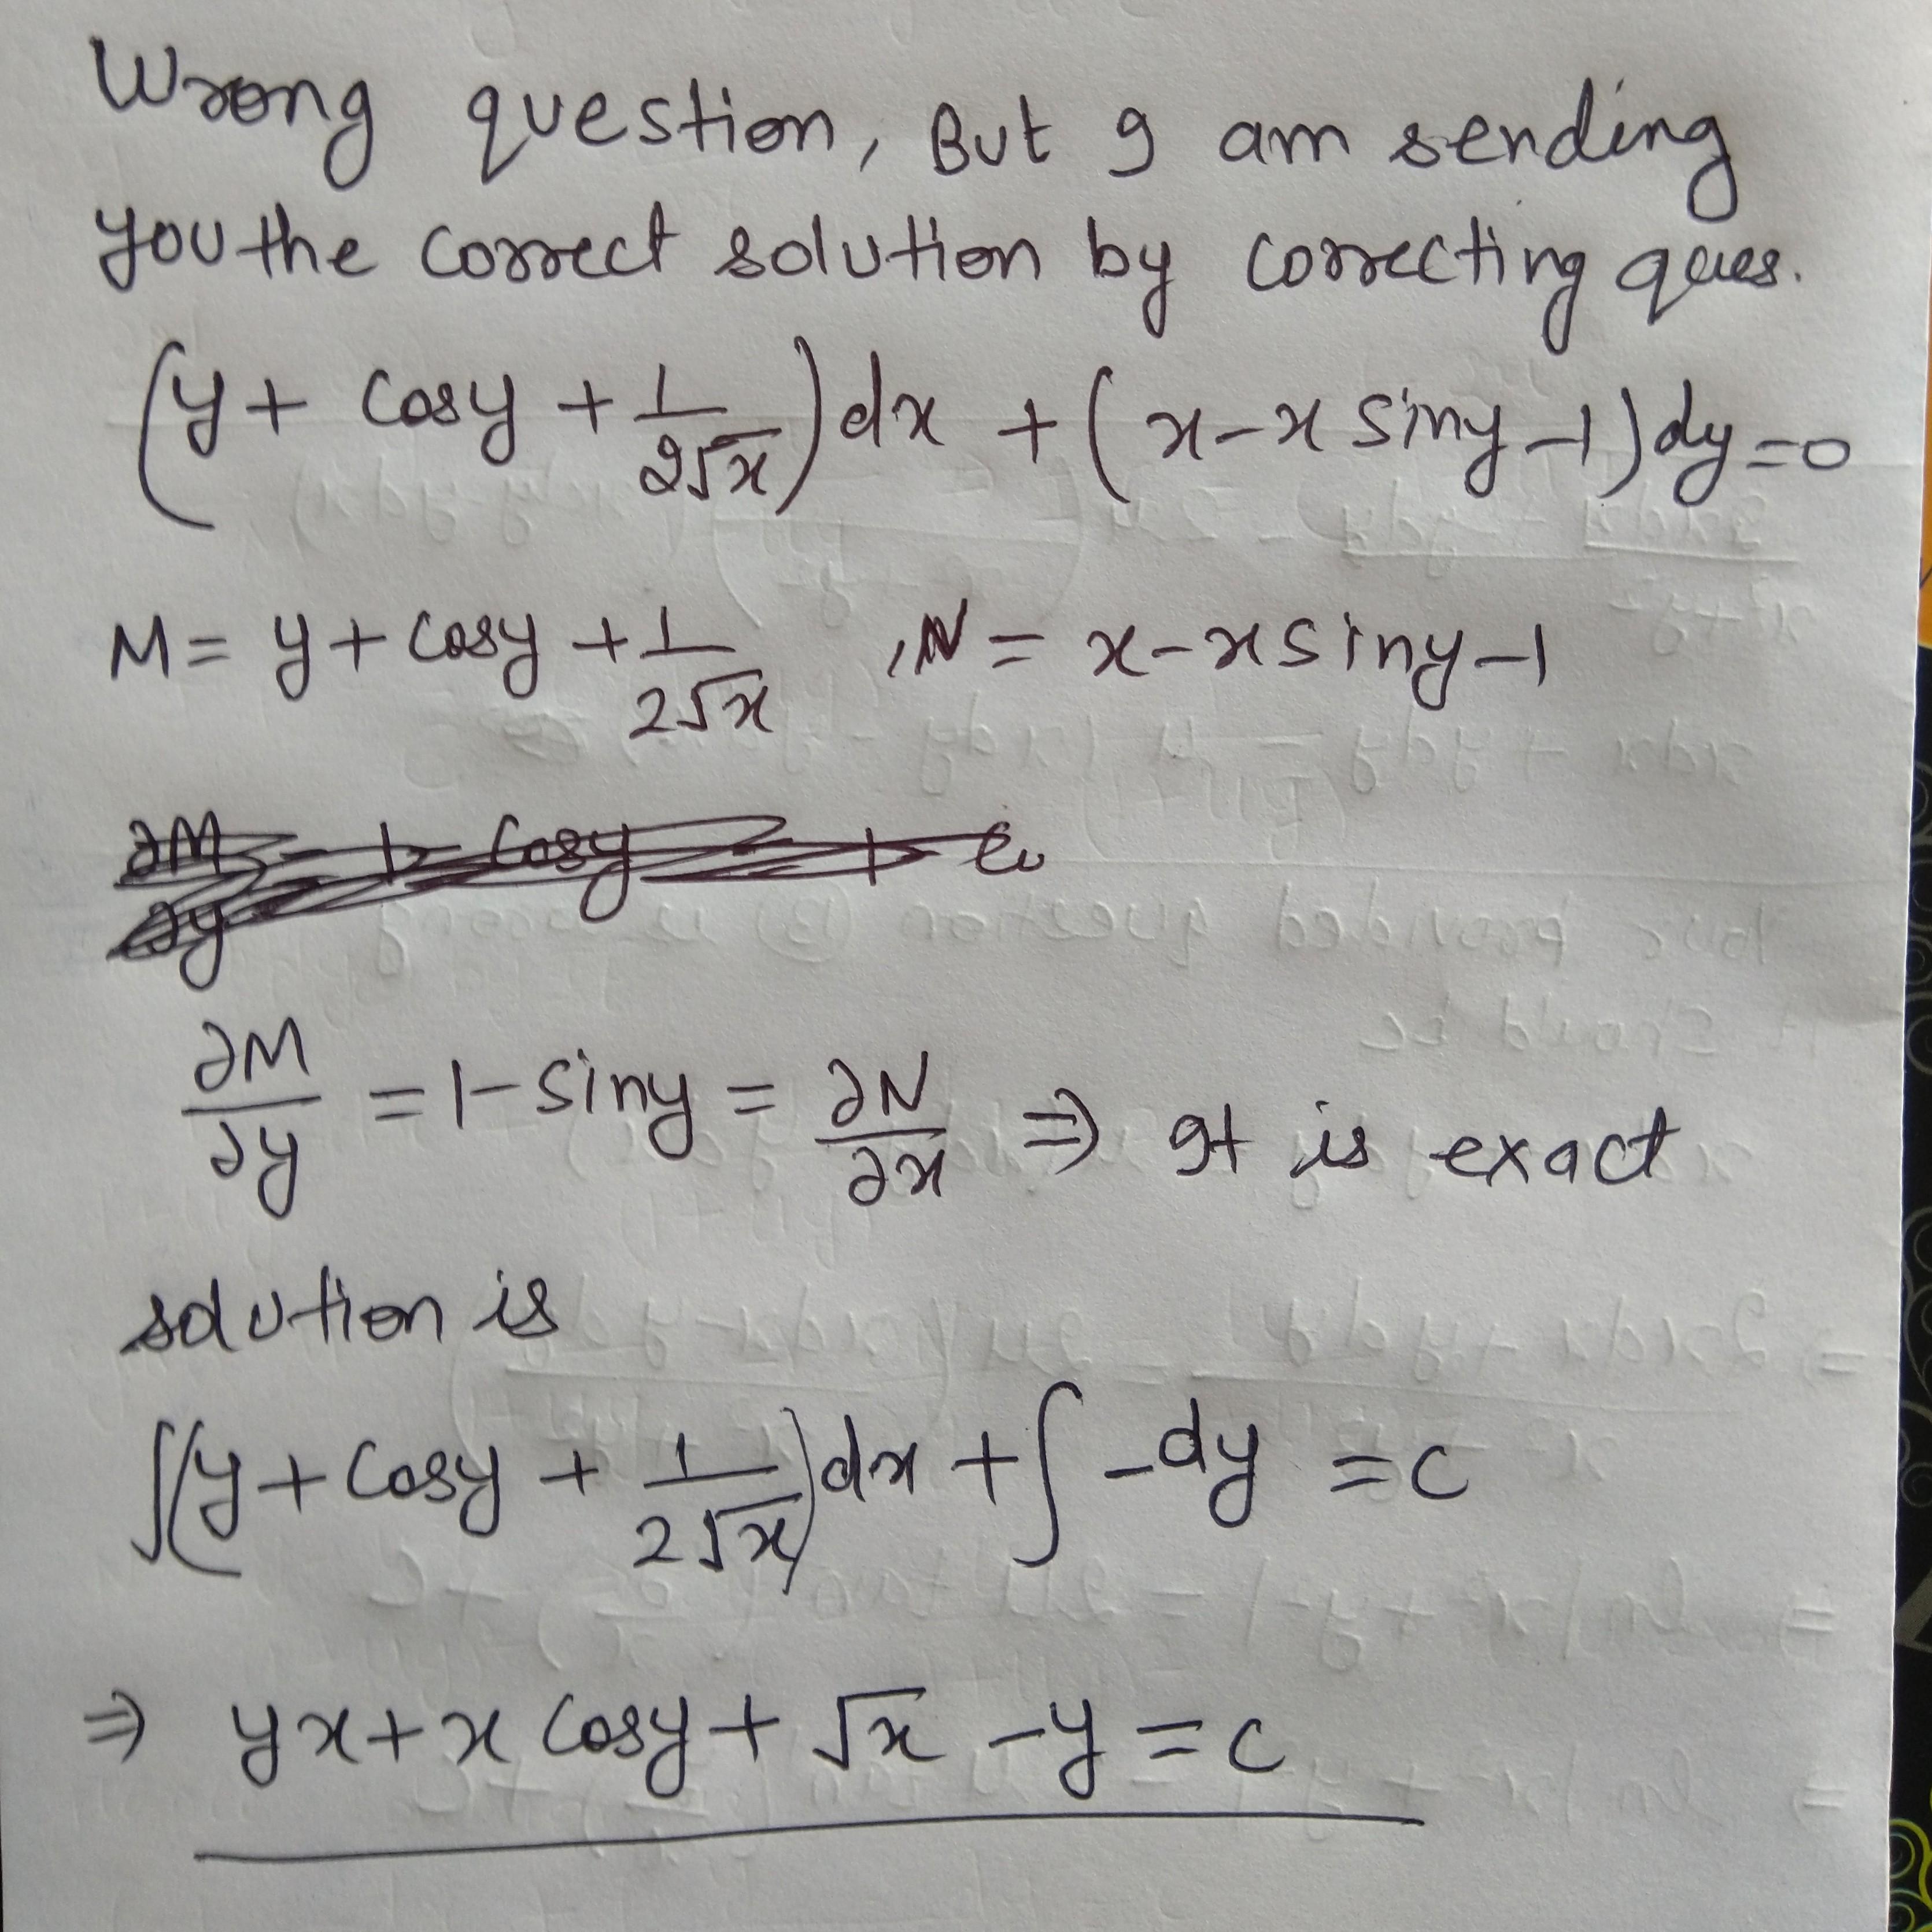 Wrong question, But I am sending
you the correct solution by correcting ques.
(y + cosy + 1/2√x) dx + (x - x siny - 1) dy = 0
M = y + cosy + 1/2√x , N = x - x siny - 1
∂M/∂y = 1 - siny = ∂N/∂x ⇒ It is exact
solution is
∫(y + cosy + 1/2√x) dx + ∫ -dy = c
⇒ yx + x cosy + √x - y = c